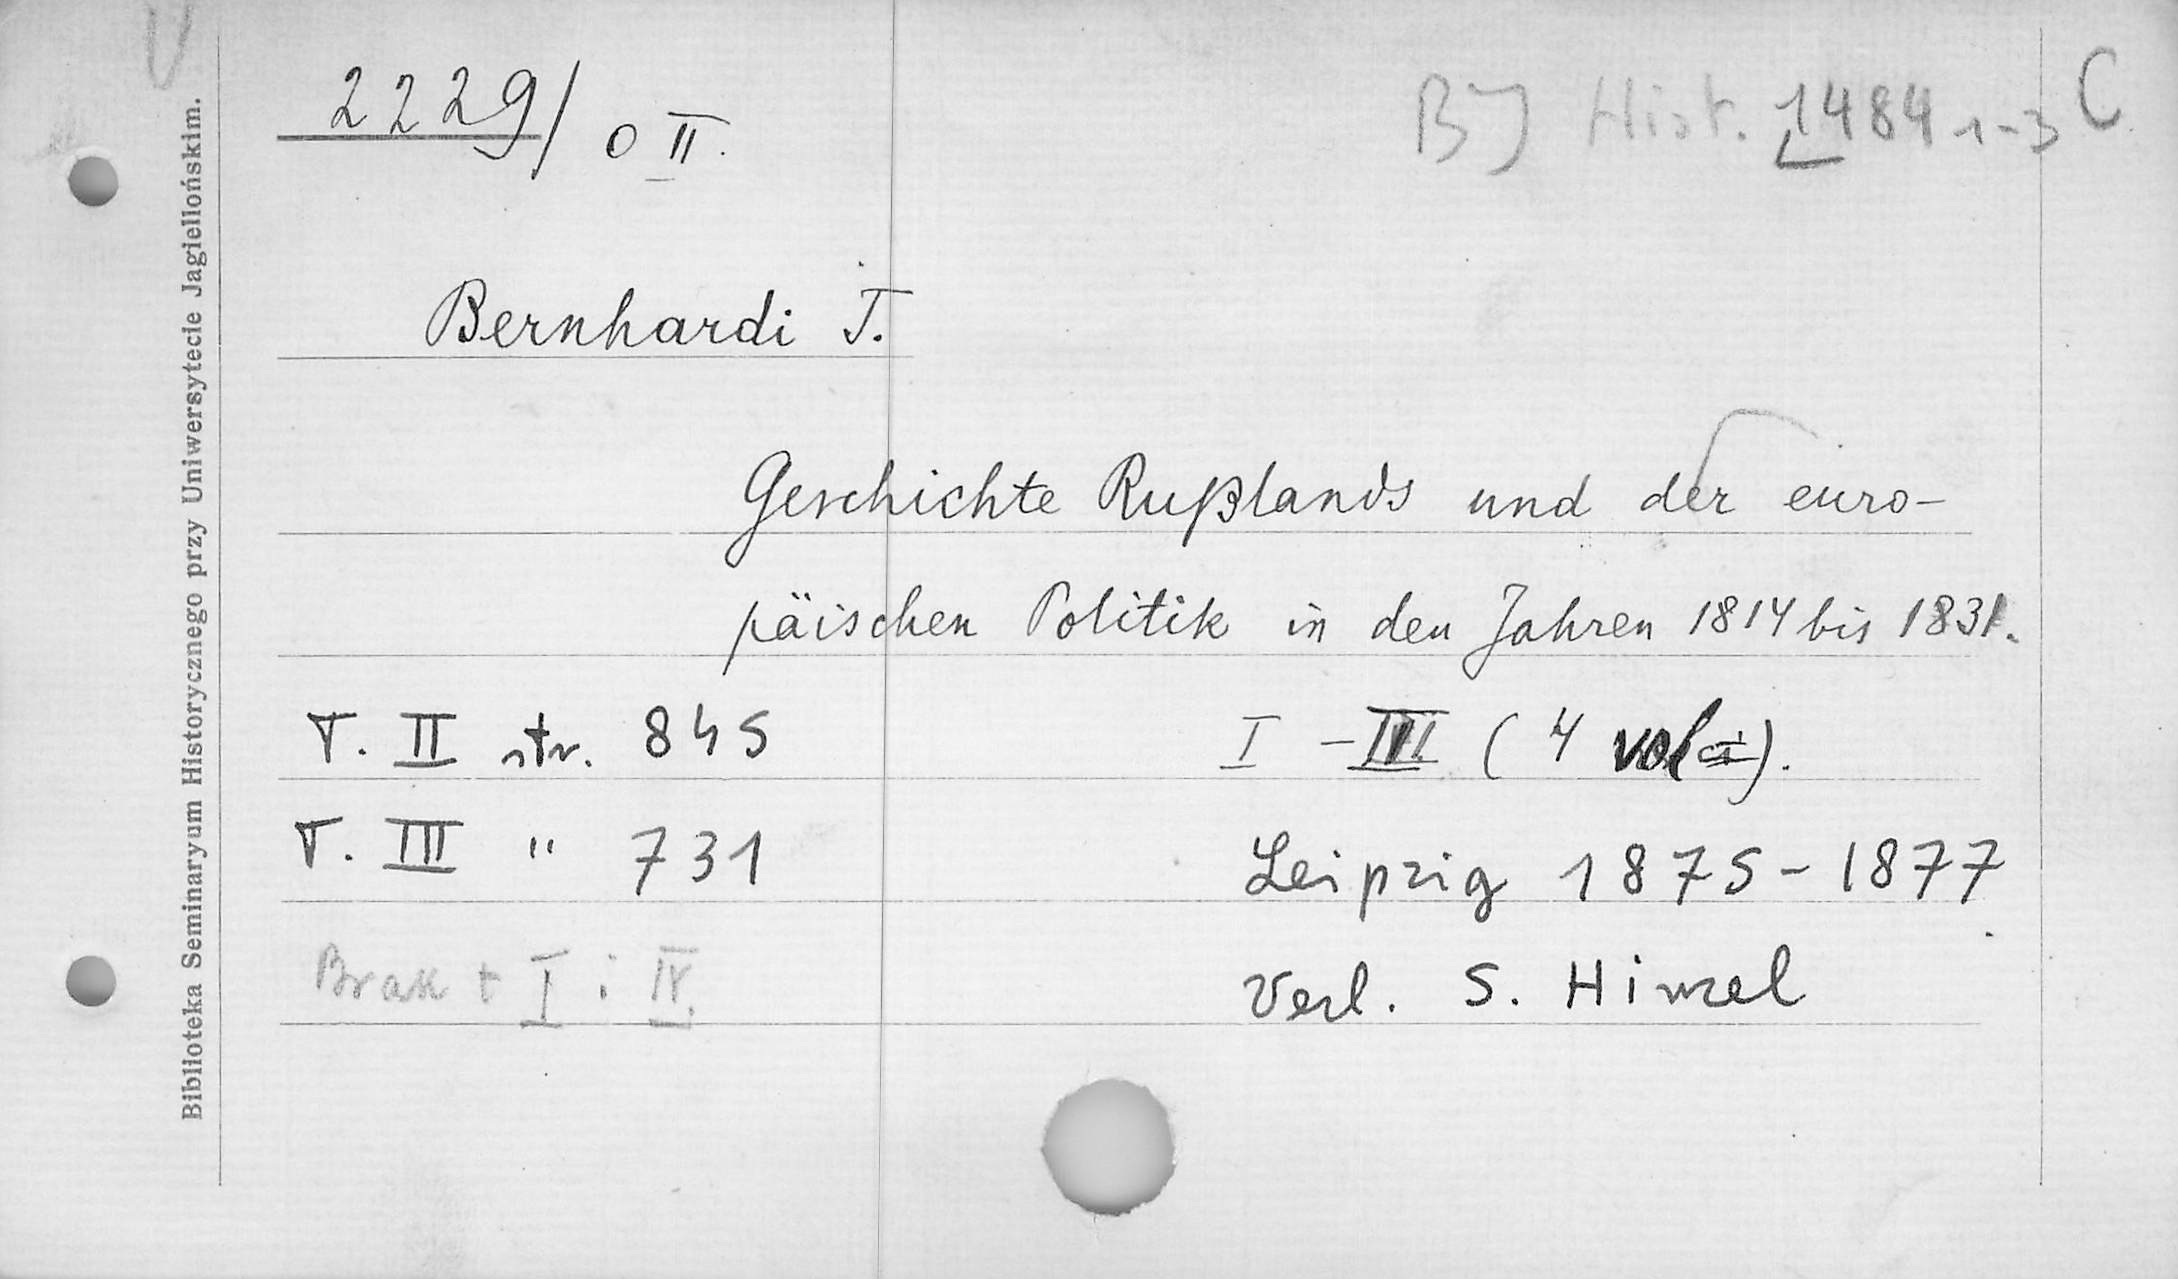 V
2229/ 0 II.
BJ Hist. 1484 1-3 C
Bernhardi T.
Geschichte Rußlands und der euro-
päischen Politik in den Jahren 1814 bis 1831.
T. II str. 845
I - III (4 vol).
T. III " 731
Leipzig 1875-1877
Brak t I i IV.
Verl. S. Hirzel
Biblioteka Seminaryum Historycznego przy Uniwersytecie Jagiellońskim.